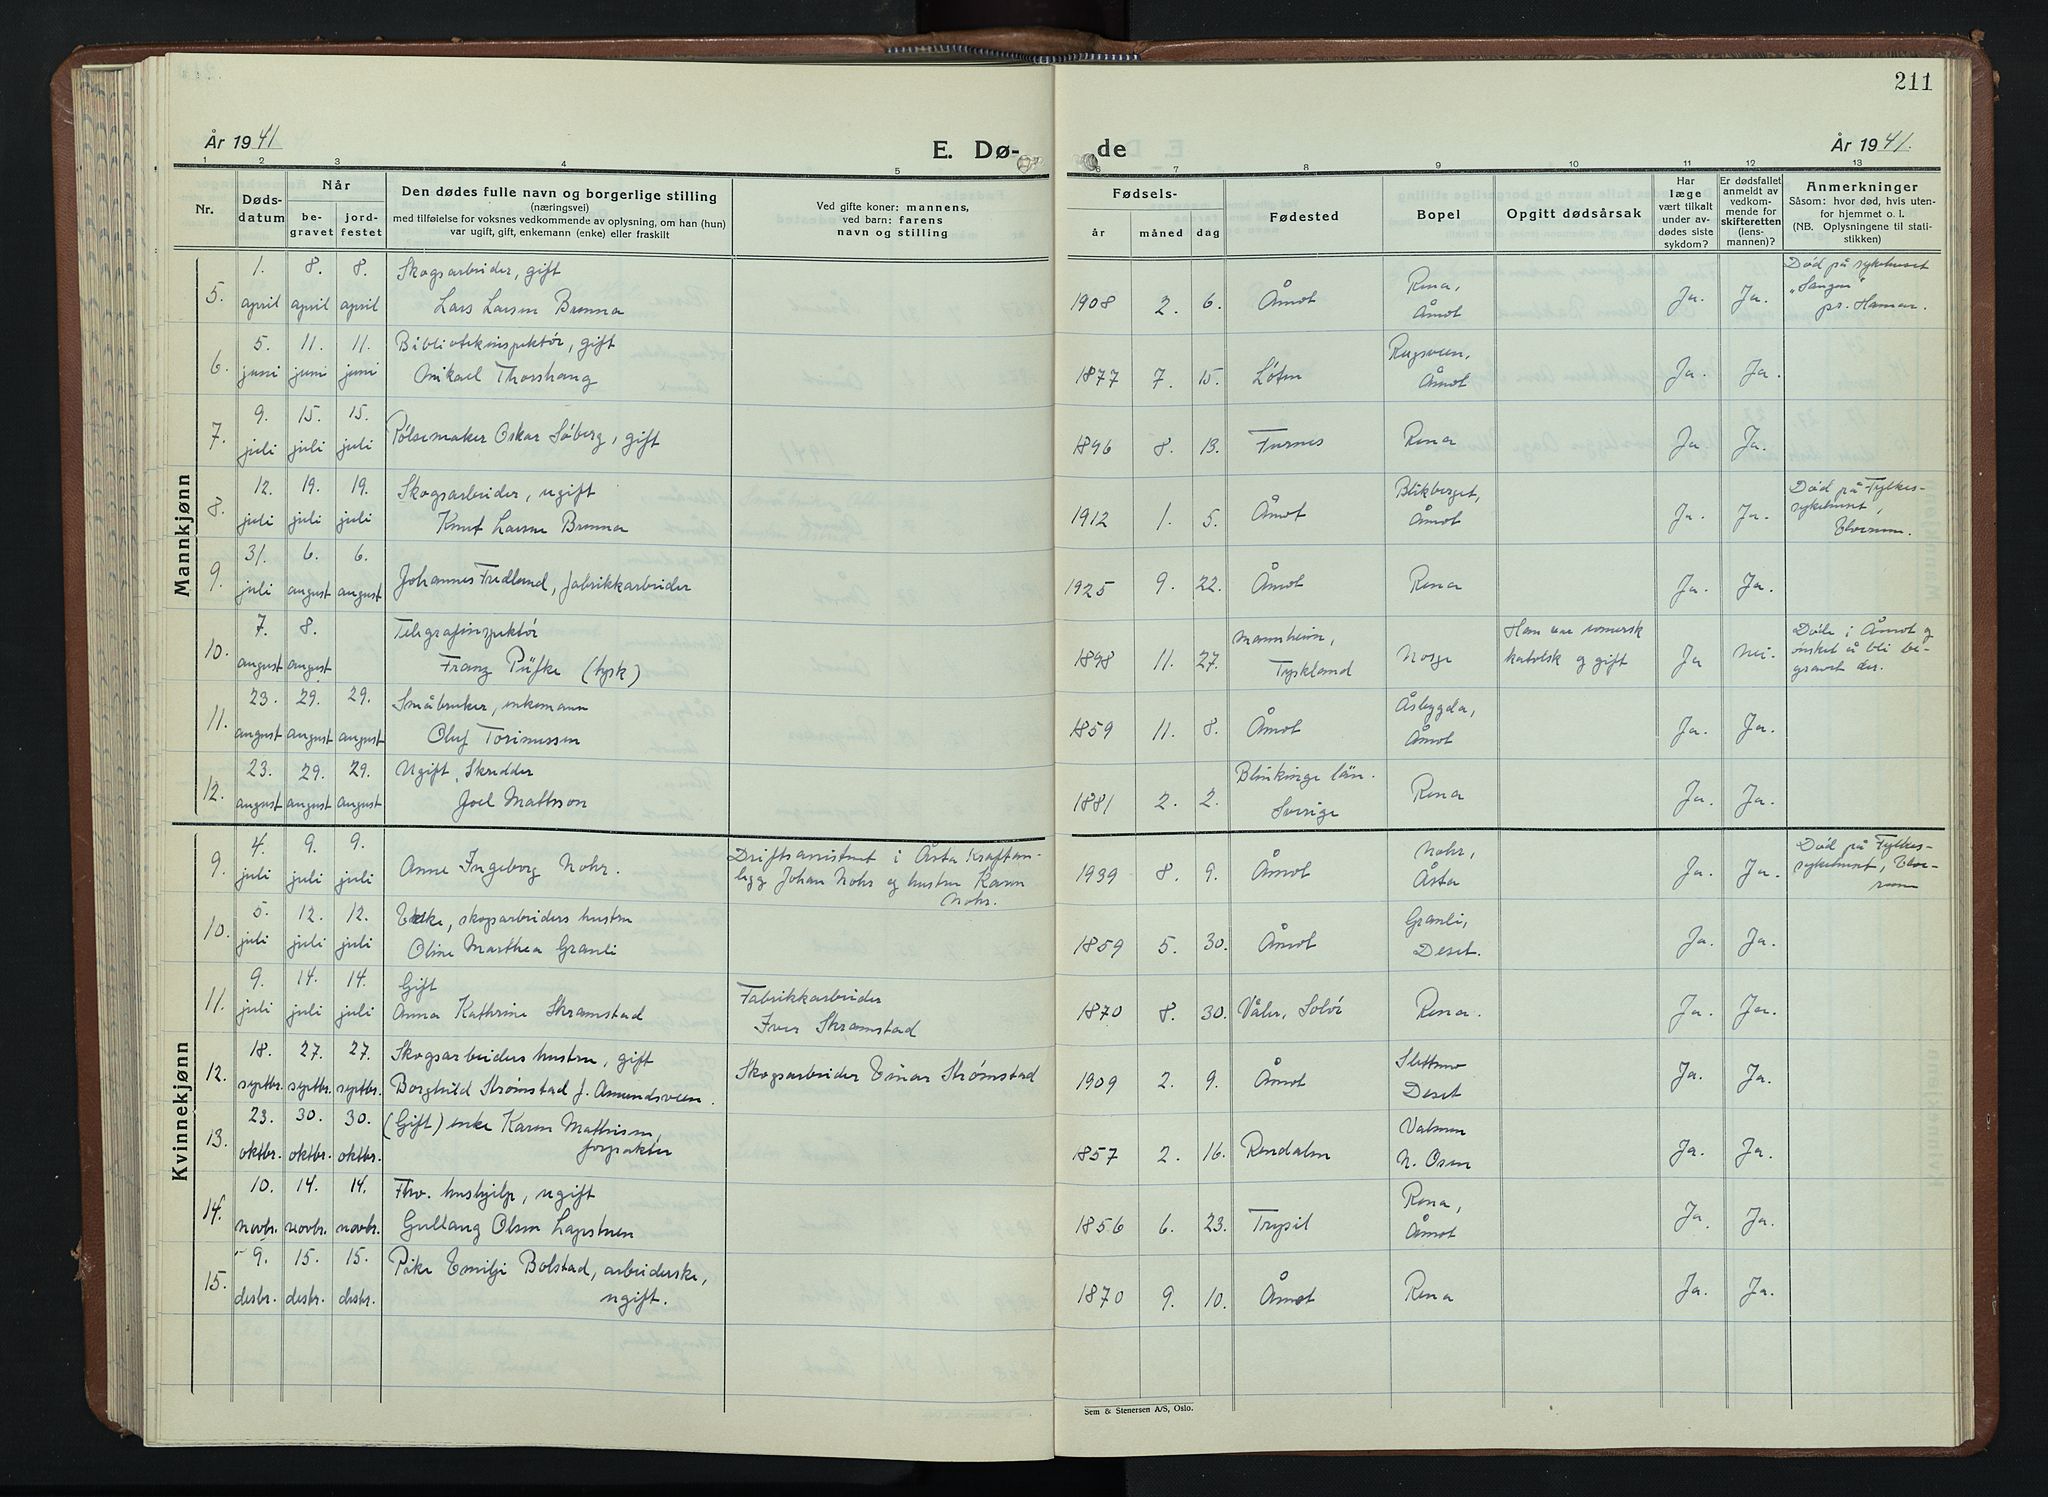 211
År 1941
E. Dø-
de
År 1941.
1 2 3 4 5 6 7 8 9 10 11 12 13
Nr.
Døds-
datum
Når
be-
gravet
jord-
festet
Den dødes fulle navn og borgerlige stilling
(næringsvei)
med tilføielse for voksnes vedkommende av oplysning, om han (hun)
var ugift, gift, enkemann (enke) eller fraskilt
Ved gifte koner: mannens,
ved barn: farens
navn og stilling
Fødsels-
år måned dag
Fødested
Bopel
Opgitt dødsårsak
Har
læge
vært tilkalt
under av-
dødes siste
sykdom?
Er dødsfallet
anmeldt av
vedkom-
mende for
skifteretten
(lens-
mannen)?
Anmerkninger
Såsom: hvor død, hvis uten-
for hjemmet o. l.
(NB. Oplysningene til stati-
stikken)
Mannkjønn
5. 1. april 8. april 8. april Skogsarbeider, gift
Lars Larsen Brenna
1908 2. 6. Åmot Rena, Åmot Ja. Ja. Død på sykehuset
"Sangen"
pr. Hamar.
6. 5. juni 11. juni 11. juni Bibliotekinspektør, gift
Mikael Thorshaug
1877 7. 15. Løten Rugsveen, Åmot Ja. Ja.
7. 9. juli 15. juli 15. juli Pølsemaker Oskar Søberg, gift
1896 8. 13. Furnes Rena Ja. Ja.
8. 12. juli 19. juli 19. juli Skogsarbeider, ugift
Knut Larsen Brenna
1912 1. 5. Åmot Blikberget, Åmot Ja. Ja. Død på Fylkes-
sykehuset,
Elverum.
9. 31. juli 6. august 6. august Johannes Fredlund, fabrikkarbeider
1925 9. 22. Åmot Rena Ja. Ja.
10. 7. august 8. august Telegrafinspektør
Franz Püfke (tysk)
1898 11. 27. Mannheim, Tyskland Norge Han var romersk
katolsk og gift Ja Nei. Døde i Åmot og
ønsket å bli be-
gravet der.
11. 23. august 29. august 29. august Småbruker, enkemann
Oluf Torinussen
1859 11. 8. Åmot Åsbygda, Åmot Ja. Ja.
12. 23. august 29. august 29. august Ugift, Skredder
Joel Mattsson
1881 2. 2. Blekinge län. Sverige Rena Ja. Ja.
Kvinnekjønn
9. 4. juli 9. juli 9. juli Anne Ingeborg Nohr. Driftsassistent i Åsta Kraftan-
legg Johan Nohr og hustru Karen
Nohr.
1939 8. 9. Åmot Nohr, Åsta Ja. Ja. Død på Fylkes-
sykehuset, Elve-
rum
10. 5. juli 12. juli 12. juli Enke, skogsarbeiders hustru
Oline Marthea Granli
1859 5. 30. Åmot Granli, Deset. Ja. Ja.
11. 9. juli 14. juli 14. juli Gift
Anna Kathrine Skramstad Fabrikkarbeider
Iver Skramstad
1870 8. 30. Våler, Solør Rena. Ja. Ja.
12. 18. septbr. 27. septbr. 27. septbr. Skogsarbeiders hustru, gift
Borghild Strømstad f. Amundsveen. Skogsarbeider Einar Strømstad
1909 2. 9. Åmot Slettmo Deset Ja. Ja.
13. 23. oktbr. 30. oktbr. 30. oktbr. (Gift) enke Karen Mathisen,
forpakter
1857 2. 16. Rendalen N. Osen Ja. Ja.
14. 10. novbr. 14. novbr. 14. novbr. Fhv. hushjelp, ugift
Gullaug Olsen
1856 6. 23. Trysil Rena, Åmot Ja. Ja.
15. 9. desbr. 15. desbr. 15. desbr. Pike Emilje Bolstad, arbeiderske,
ugift.
1870 9. 10. Åmot Rena Ja. Ja.
Sem & Stenersen A/S, Oslo.